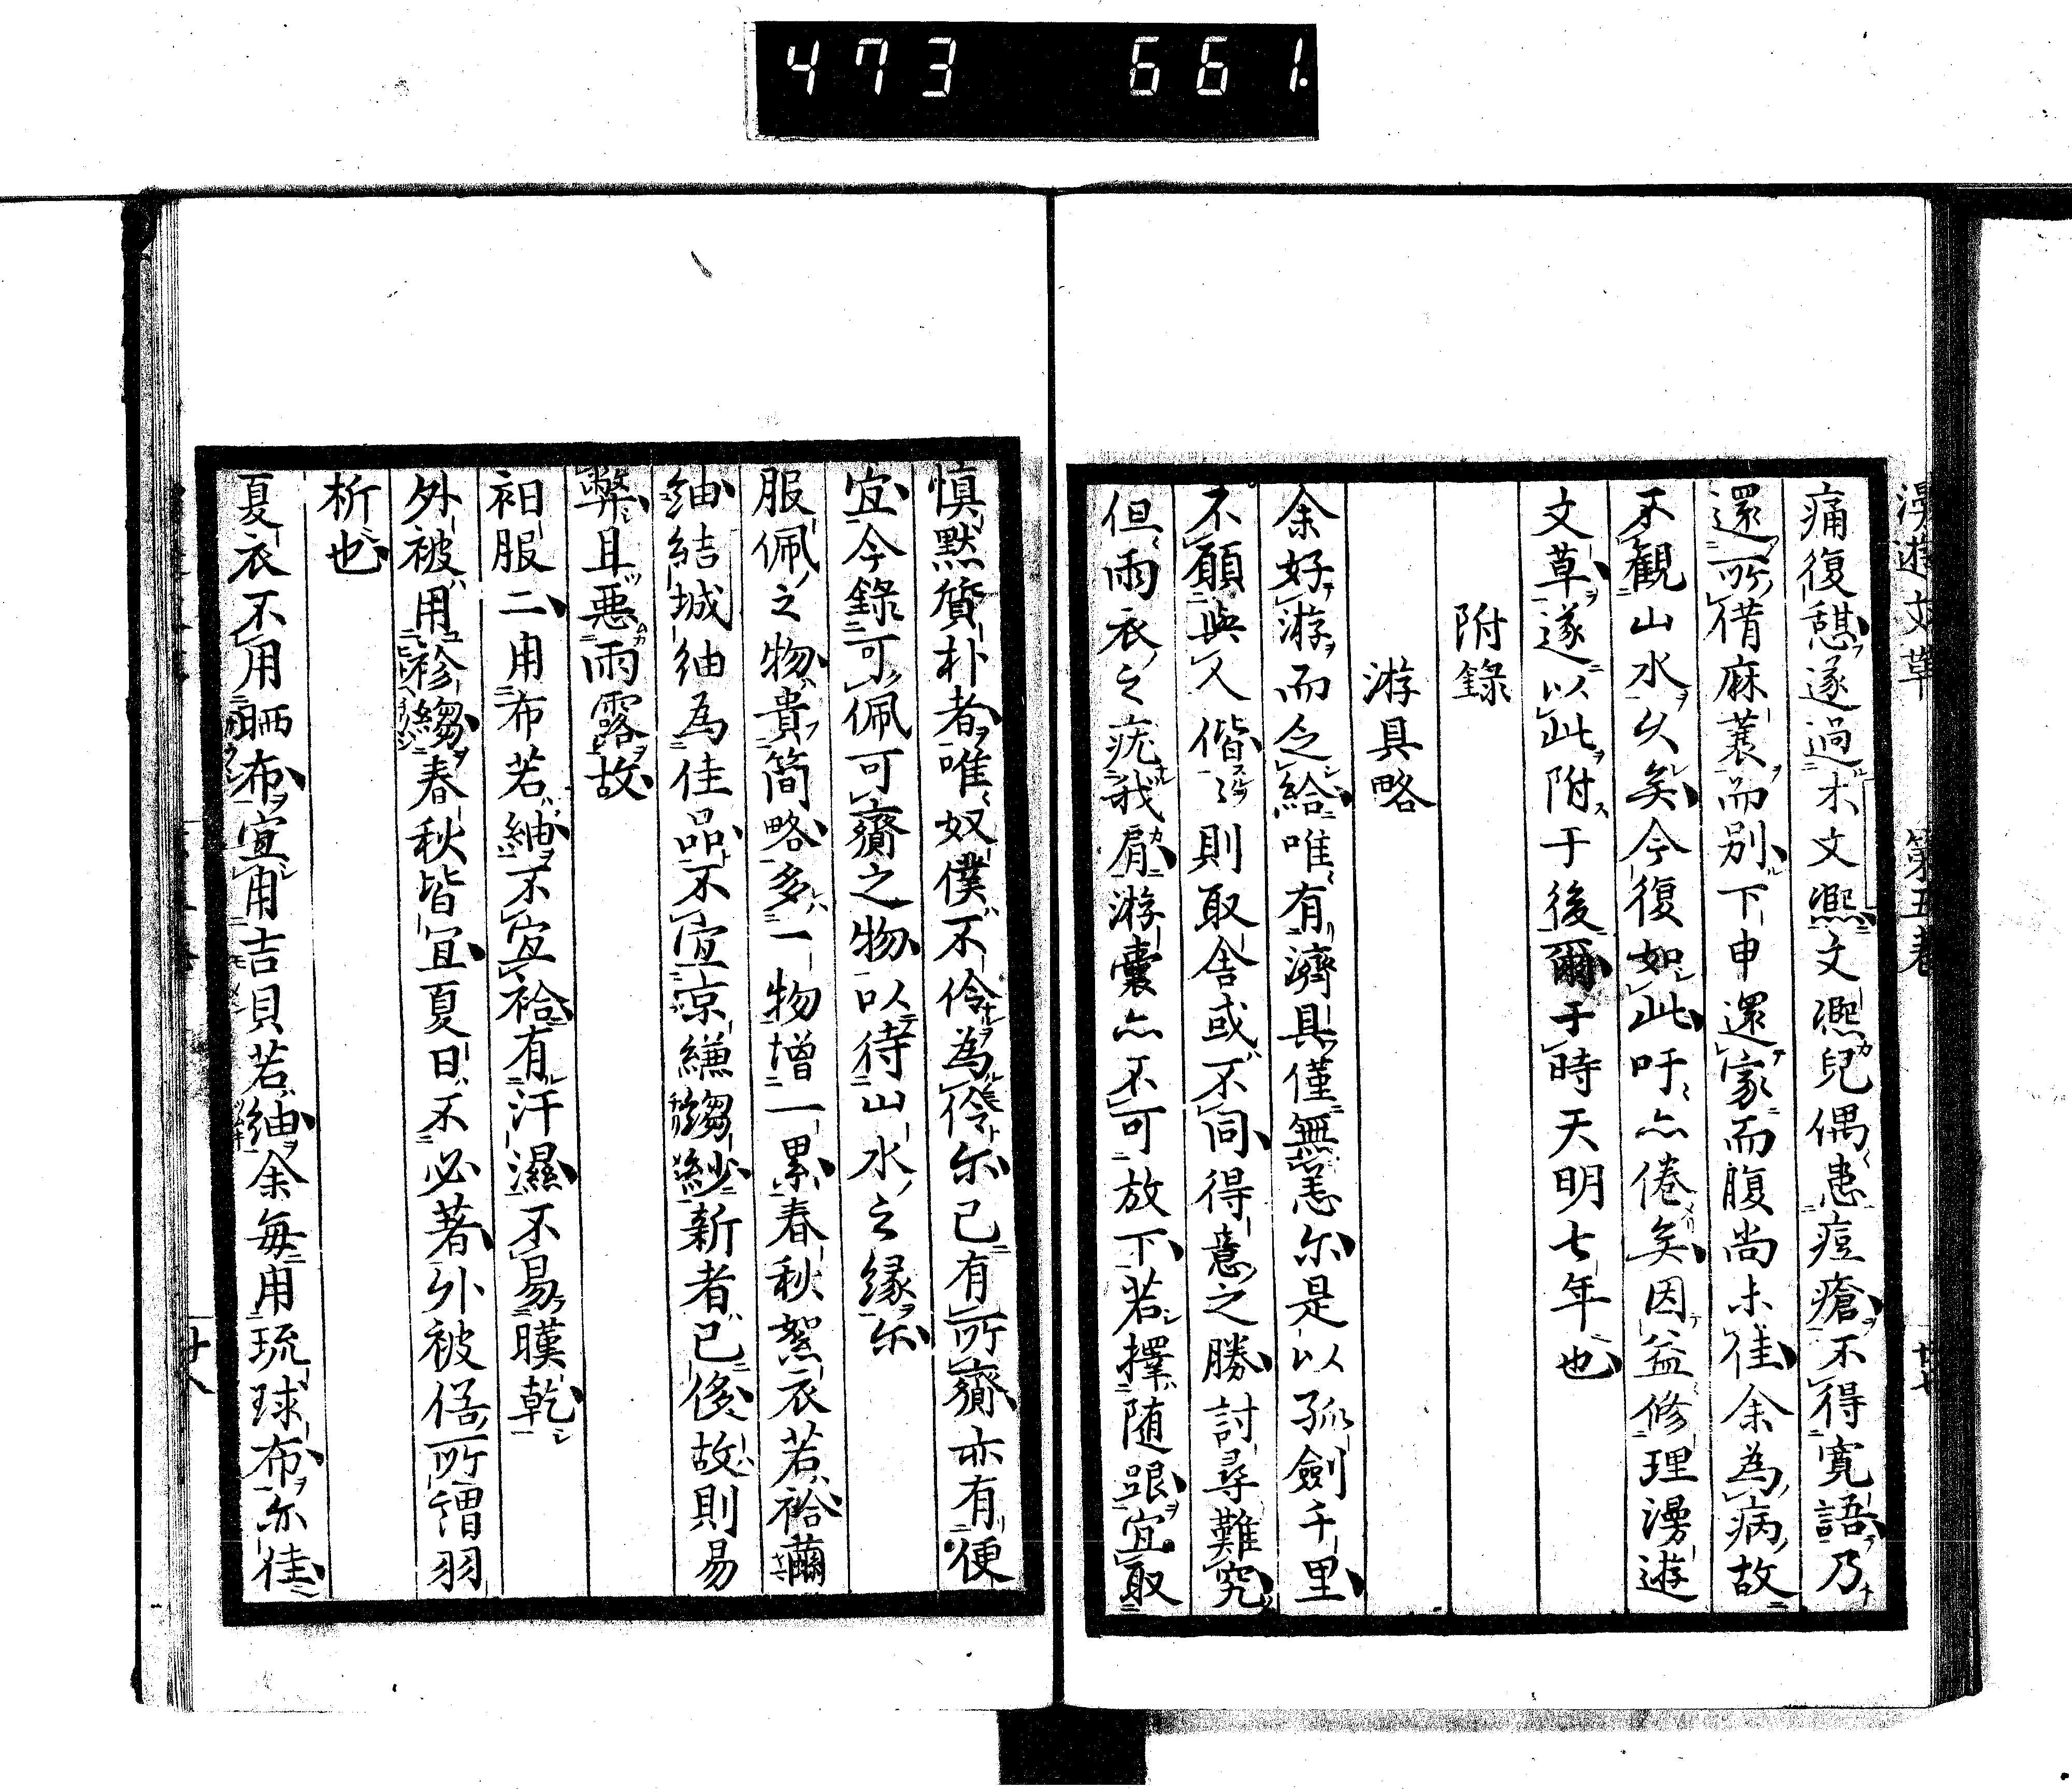 473 661.
漫遊文草 第五巻 廿七
痛復憩遂過木文凞文凞兒偶患痘瘡不得寛語乃
還所借麻蓑而別下申還家而腹尚未佳余為病故
不観山水久矣今復如此吁亦倦矣因益修理漫遊
文草遂以此附于後爾于時天明七年也
附錄
游具略
余好游而乏給唯有濟具僅無恙尓是以孤劍千里
不願與人偕則取舎或不同得意之勝討尋難究
但雨衣之疣我肩游囊亦不可放下若擇随跟宜取
慎黙質朴者唯奴僕不伶為伶尓已有所齎亦有便
宜今錄可佩可齎之物以待山水之縁尓
服佩之物貴簡略多一物增一累春秋絮衣若袷繭
紬結城紬為佳品不宜京縑縐紗新者已後故則易
弊且悪雨露故
袙服二用布若紬不宜袷有汗濕不易暵乾
外被用袗縐春秋皆宜夏日不必著外被俗所謂羽
析也
夏衣不用晒布宜用吉貝若紬余毎用琉球布亦佳
廿八